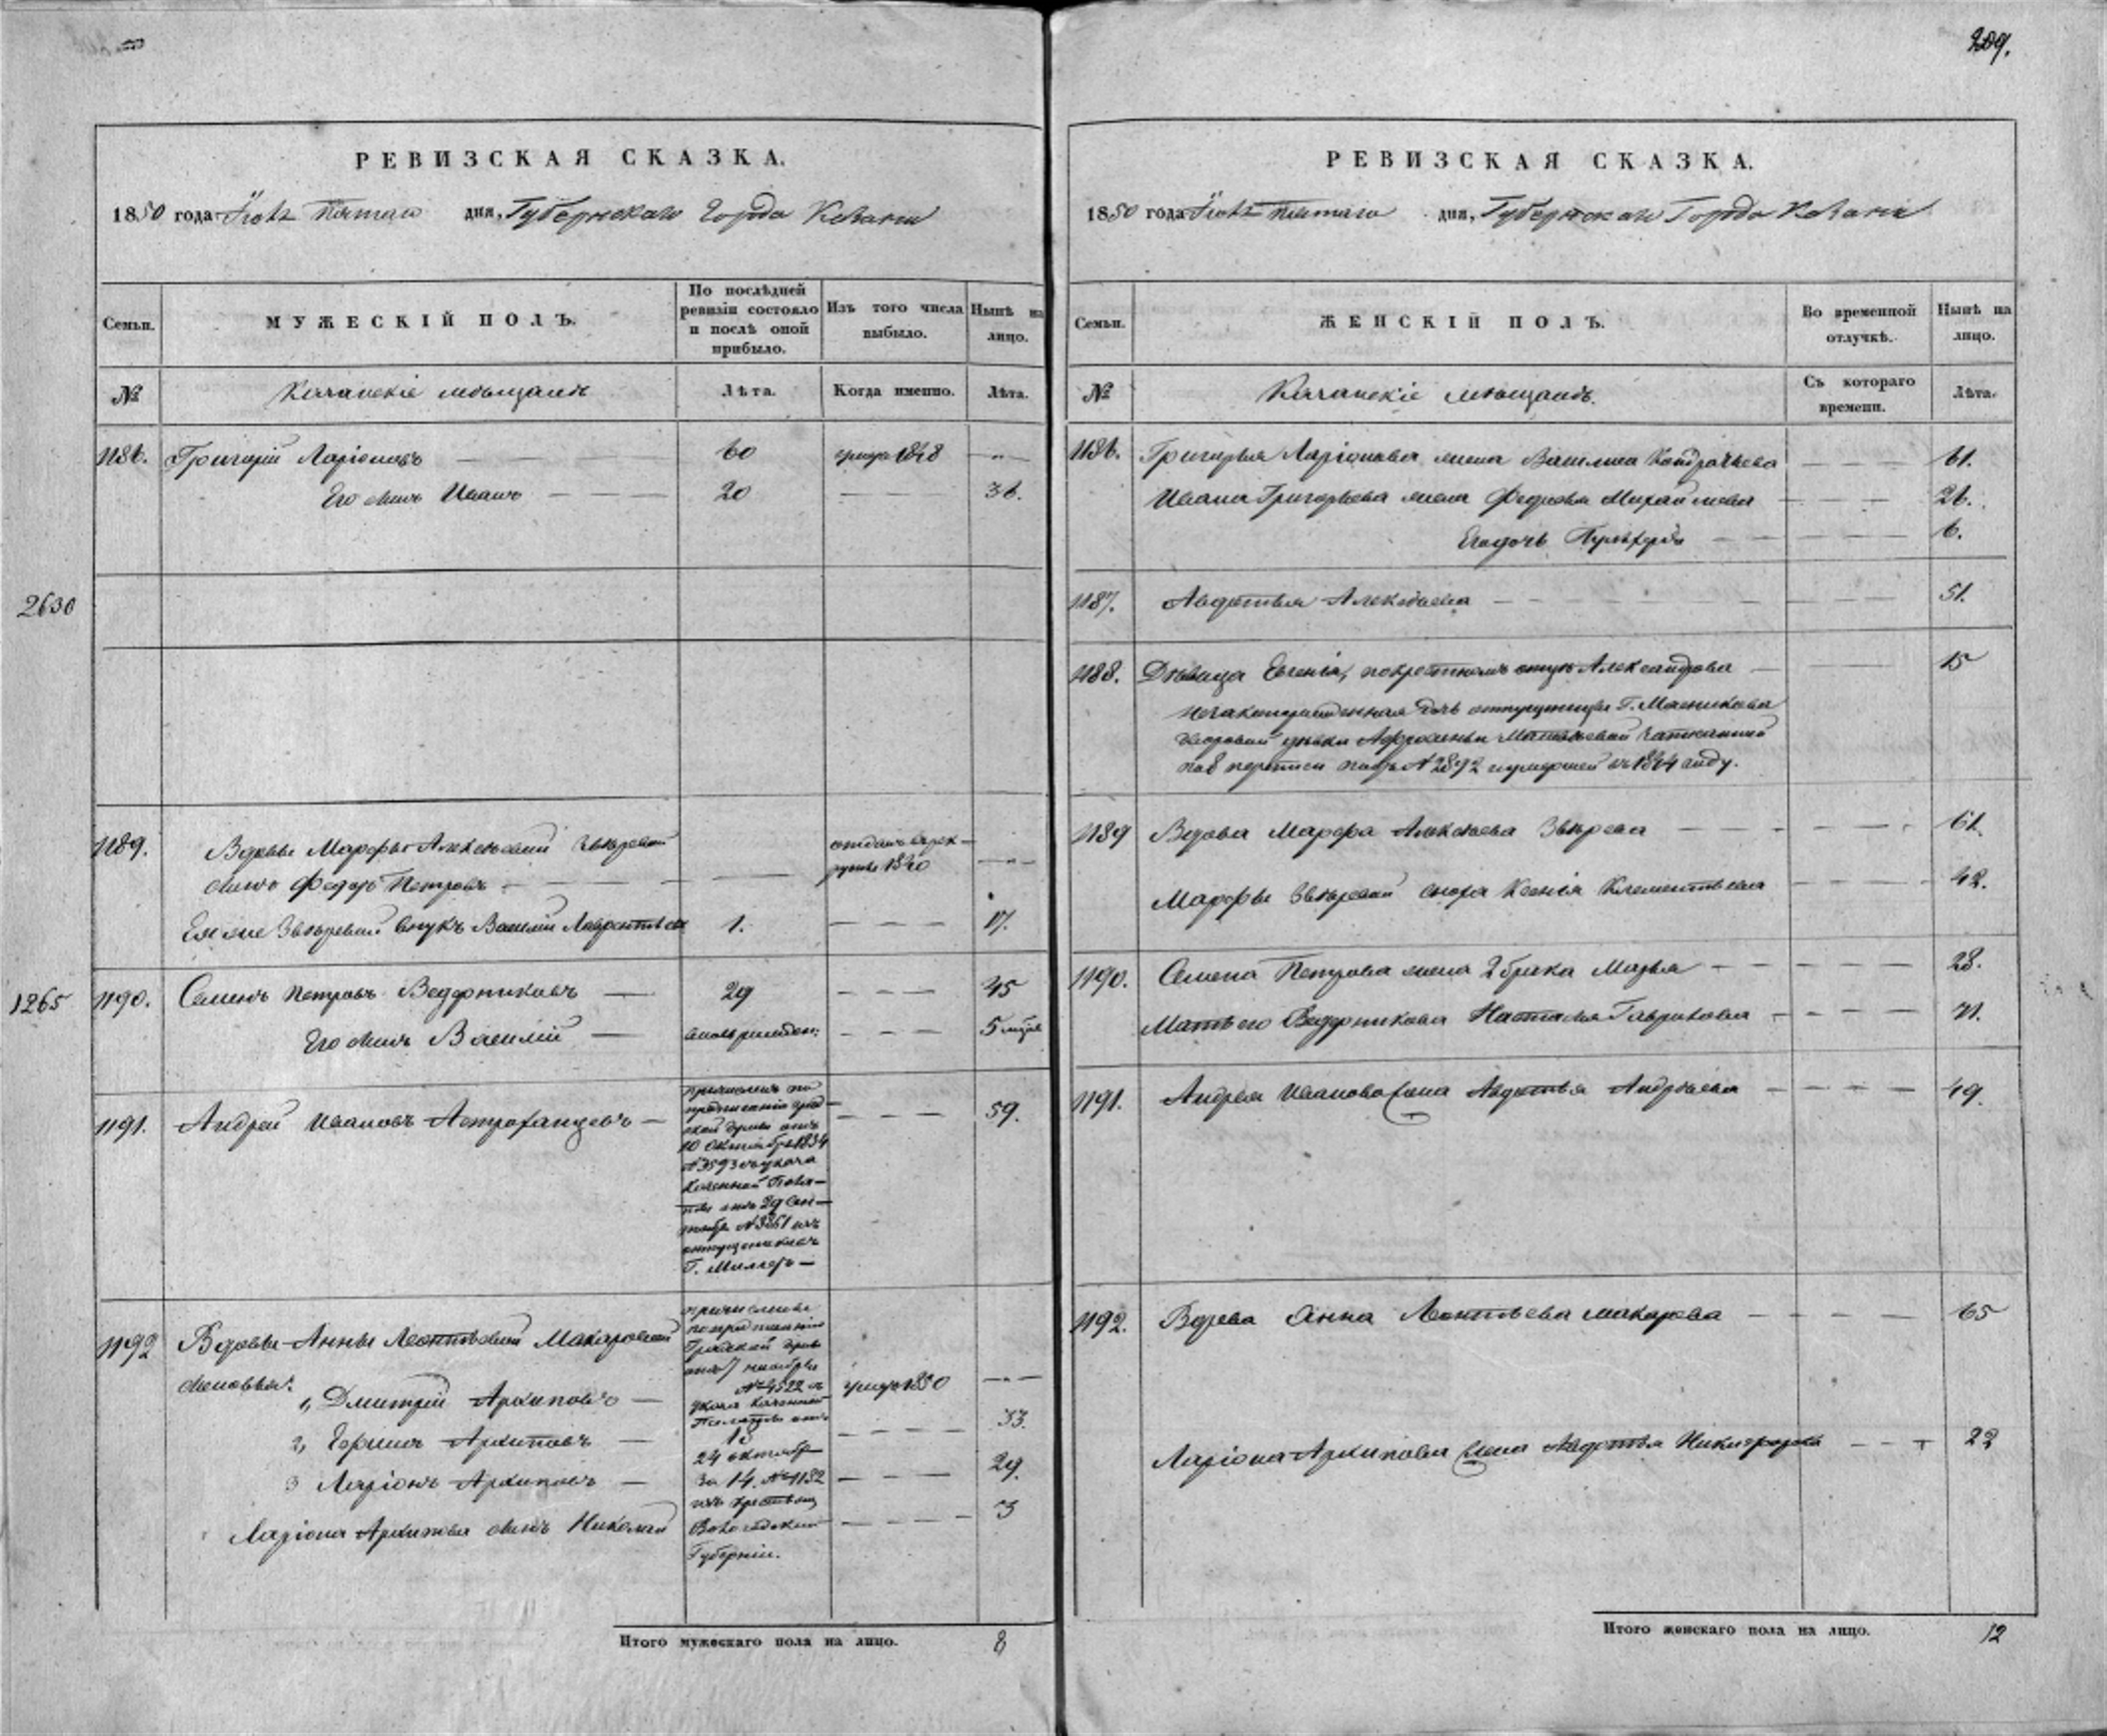 209.
РЕВИЗСКАЯ СКАЗКА.
1850 года Іюля пятаго дня, Губернскаго Города Казани
Семьи.
МУЖЕСКІЙ ПОЛЪ.
По послѣдней
ревизіи состояло
и послѣ оной
прибыло.
Изъ того числа
выбыло.
Нынѣ на
лицо.
№
Казанскіе мѣщанъ
Лѣта.
Когда именно.
Лѣта.
1186. Григорій Ларіоновъ — 60 умеръ 1848 — „ —
Его сынъ Иванъ — 20 — 36.
2630
1189. Вдовы Марфы Алексѣевой Звѣревой отданъ въ рек-
сынъ Федоръ Петровъ — — руты 1840 — „ —
Ея же Звѣревой внукъ Василій Лаврентьевъ 1. — — — 17.
1265
1190. Семенъ Петровъ Ведерниковъ — 29 — — — 45
Его сынъ Василій — — — — 5
1191. Андрей Ивановъ Астраханцевъ — — — — 59.
причисленъ по
предписанію град-
ской думы отъ
10 Октября 1834
№ 3593 и указа
Казенной Пала-
ты отъ 29 Сен-
тября № 3861 изъ
отпущенниковъ
Г. Миллеръ —
1192 Вдовы Анны Леонтьевой Макаровой
сыновья:
1, Дмитрій Архиповъ — умеръ 1850 — „ —
2, Архиповъ — — — — 33.
3 Ларіонъ Архиповъ — — — — 29.
Ларіона Архипова сынъ Николай — — — 3
причислены
по предписанію
Градской думы
отъ 7 ноября
№ 4522 и
указа Казенной
Палаты отъ
18
24 октября
за 14. № 1132
изъ
Губерніи.
Итого мужескаго пола на лицо. 8
РЕВИЗСКАЯ СКАЗКА.
1850 года Іюля пятаго дня, Губернскаго Города Казани
Семьи.
ЖЕНСКІЙ ПОЛЪ.
Во временной
отлучкѣ.
Нынѣ на
лицо.
№
Казанскіе мѣщанъ.
Съ котораго
времени.
Лѣта.
1186. Григорья Ларіонова жена Василиса Кондратьева — — — 61.
Ивана Григорьева жена Федосья Михайлова — — — 26.
Его дочь — — 6.
1187. Авдотья Алексѣева — — — 51.
1188. Дѣвица Евгенія, по крестномъ отцѣ Александрова — 15
незаконорожденная дочь отпущенницы Г. Масникова
дворовой дѣвки Афросиньи Матвѣевой
по 8 переписи подъ № 2892 и умершей въ 1844 году.
1189 Вдова Марфа Алексѣева Звѣрева — — — 61.
Марфы Звѣревой сноха Ксенія Клементьева — — — 42.
1190. Семена Петрова жена 2 брака Марья — — — 28.
Матвѣя Ведерникова Настасья Гаврилова — — — 71.
1191. Андрея Иванова жена Авдотья Андрѣева — — — 49.
1192. Вдова Анна Леонтьева Макарова — — — 65
Ларіона Архипова жена Авдотья Никифорова — — 22
Итого женскаго пола на лицо. 12